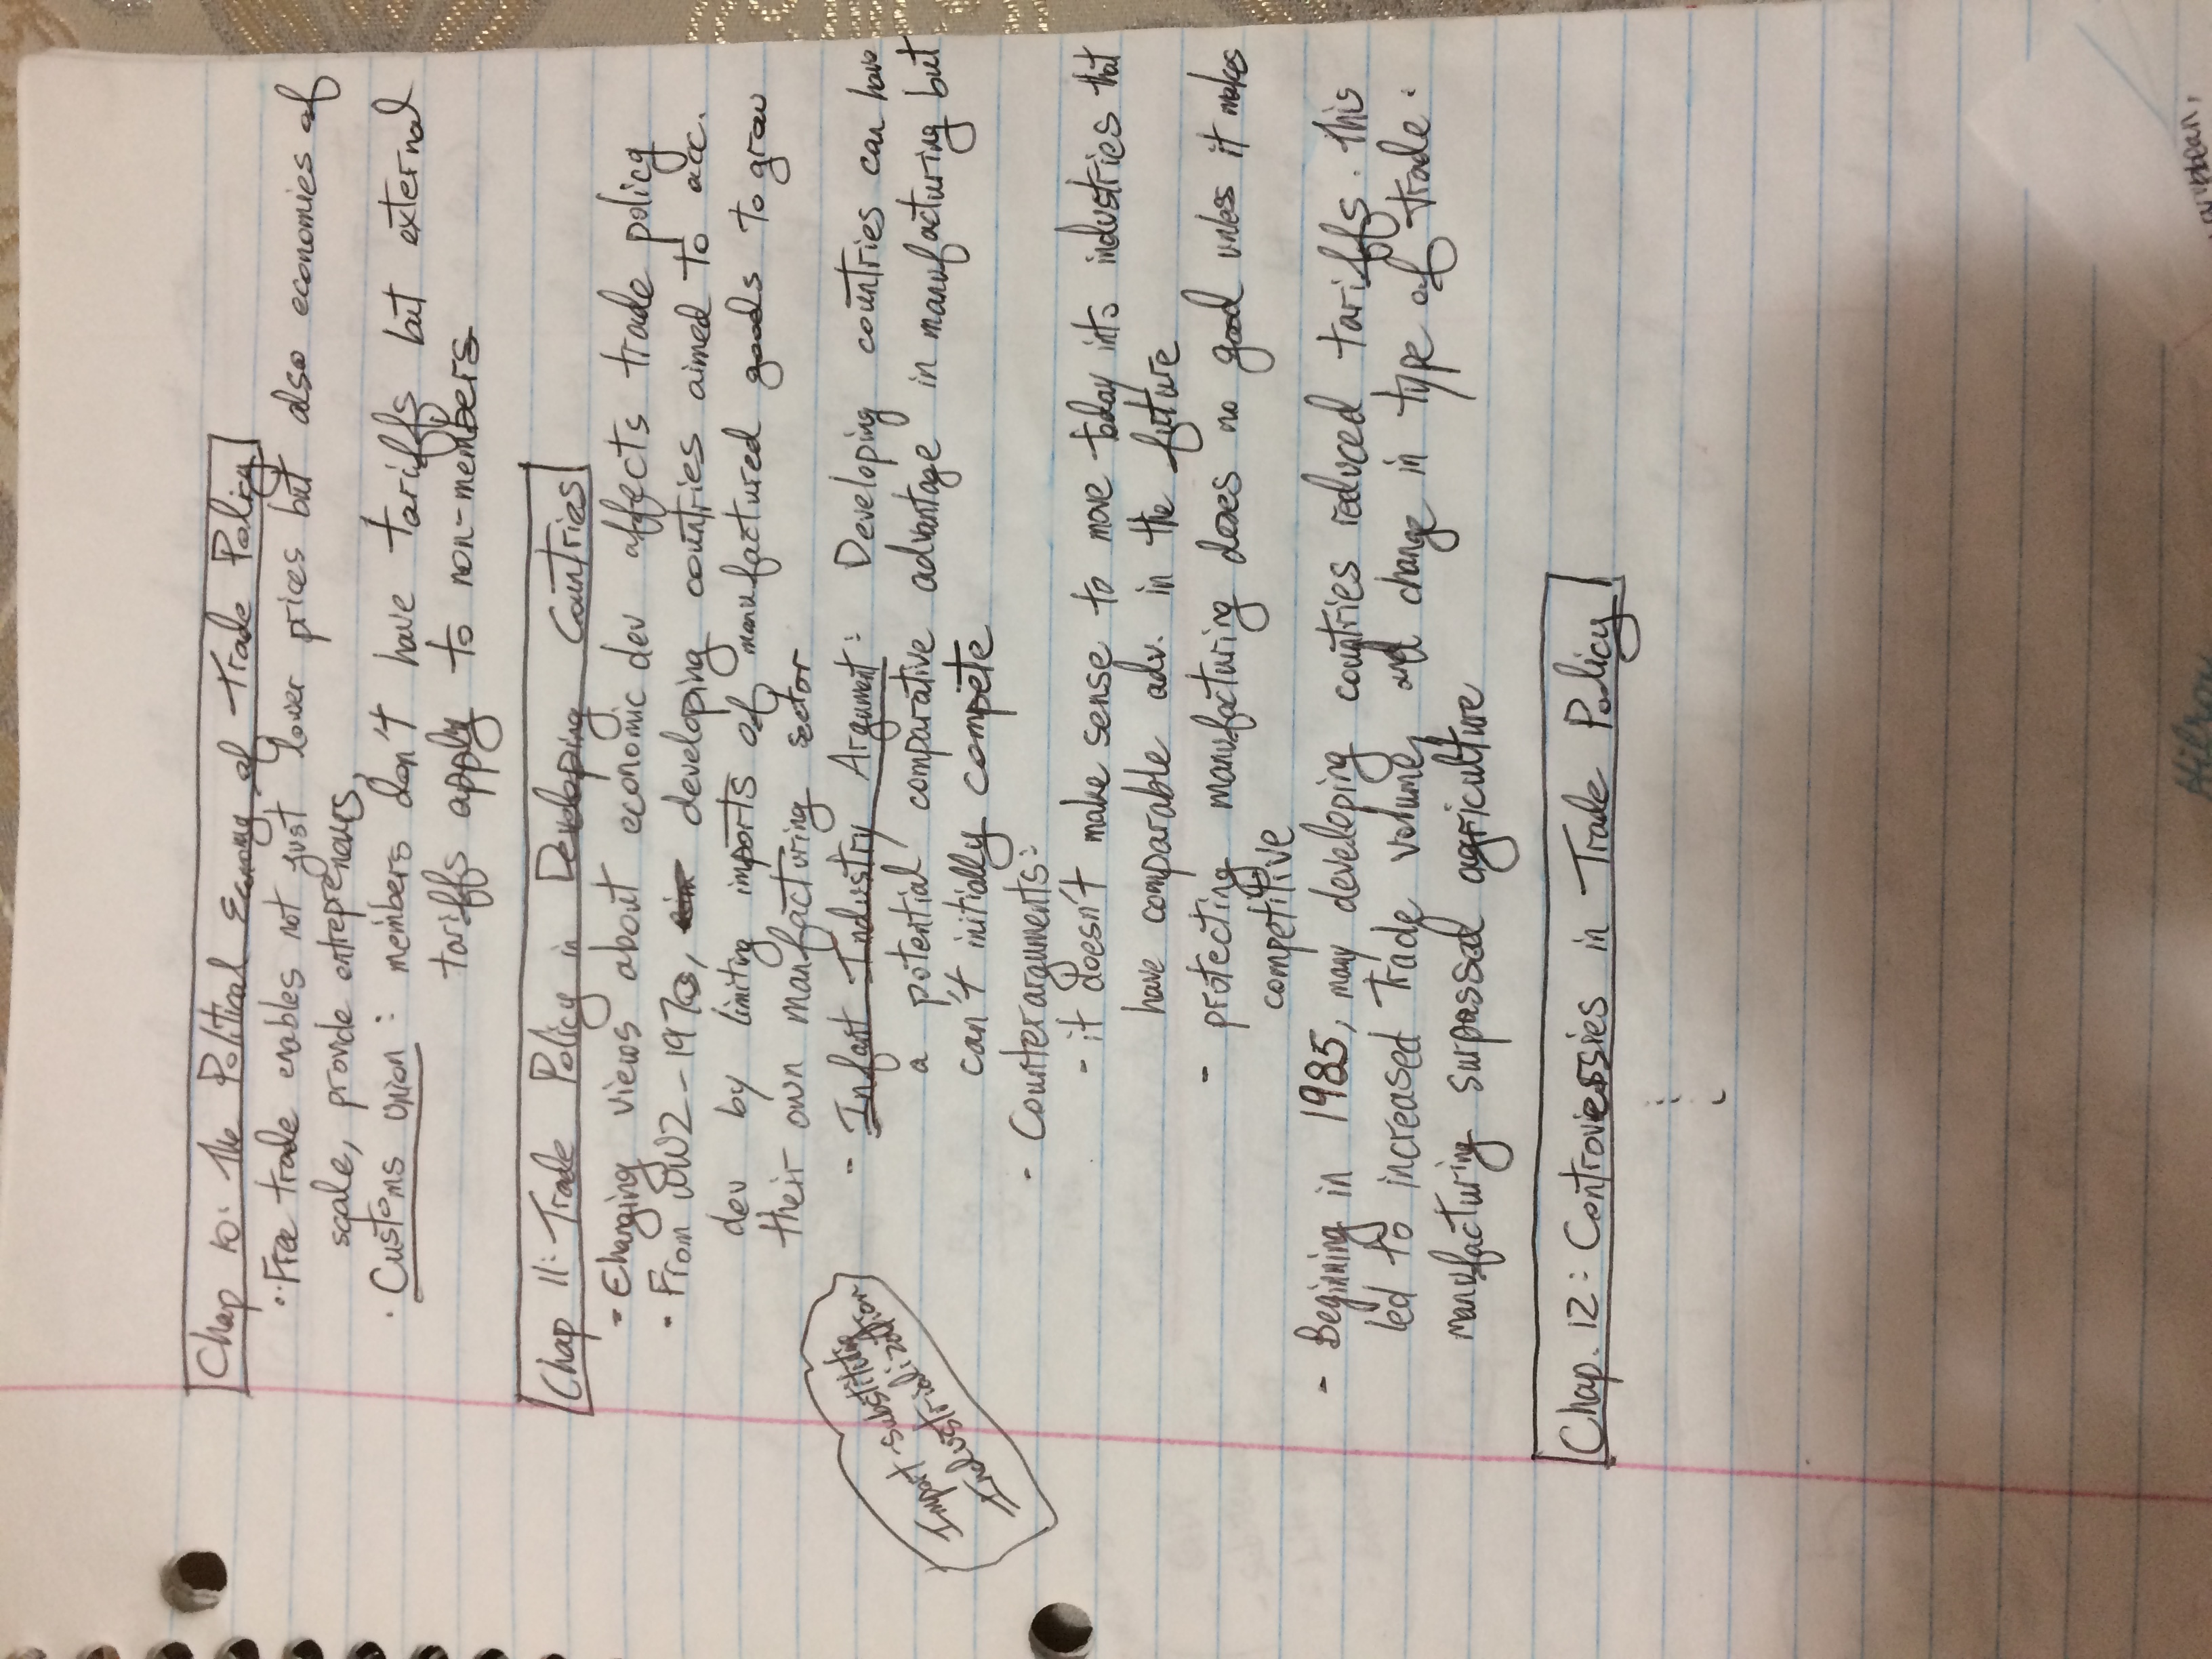 Chap 10: The Political Economy of Trade Policy
·Free trade enables not just lower prices but also economies of
scale, provide entrepreneurs,
· Customs Union : members don't have tariffs but external
tariffs apply to non-members
Chap 11: Trade Policy in Developing Countries
- Changing views about economic dev affects trade policy
- From WW2-1970s, developing countries aimed to acc.
dev by limiting imports of manufactured goods to grow
their own manfacturing sector
Import-substituting
Industrialization
- Infant Industry Argument: Developing countries can have
a potential comparative advantage in manufacturing but
can't initially compete
- Counterarguments:
- it doesn't make sense to move today into industries that
have comparable adv. in the future
- protecting manufacturing does no good unless it makes
competitive
- Beginning in 1985, many developing countries reduced tariffs. This
led to increased trade volume, and change in type of trade.
manufacturing surpassed agriculture
Chap. 12: Controversies in Trade Policy
Hilroy